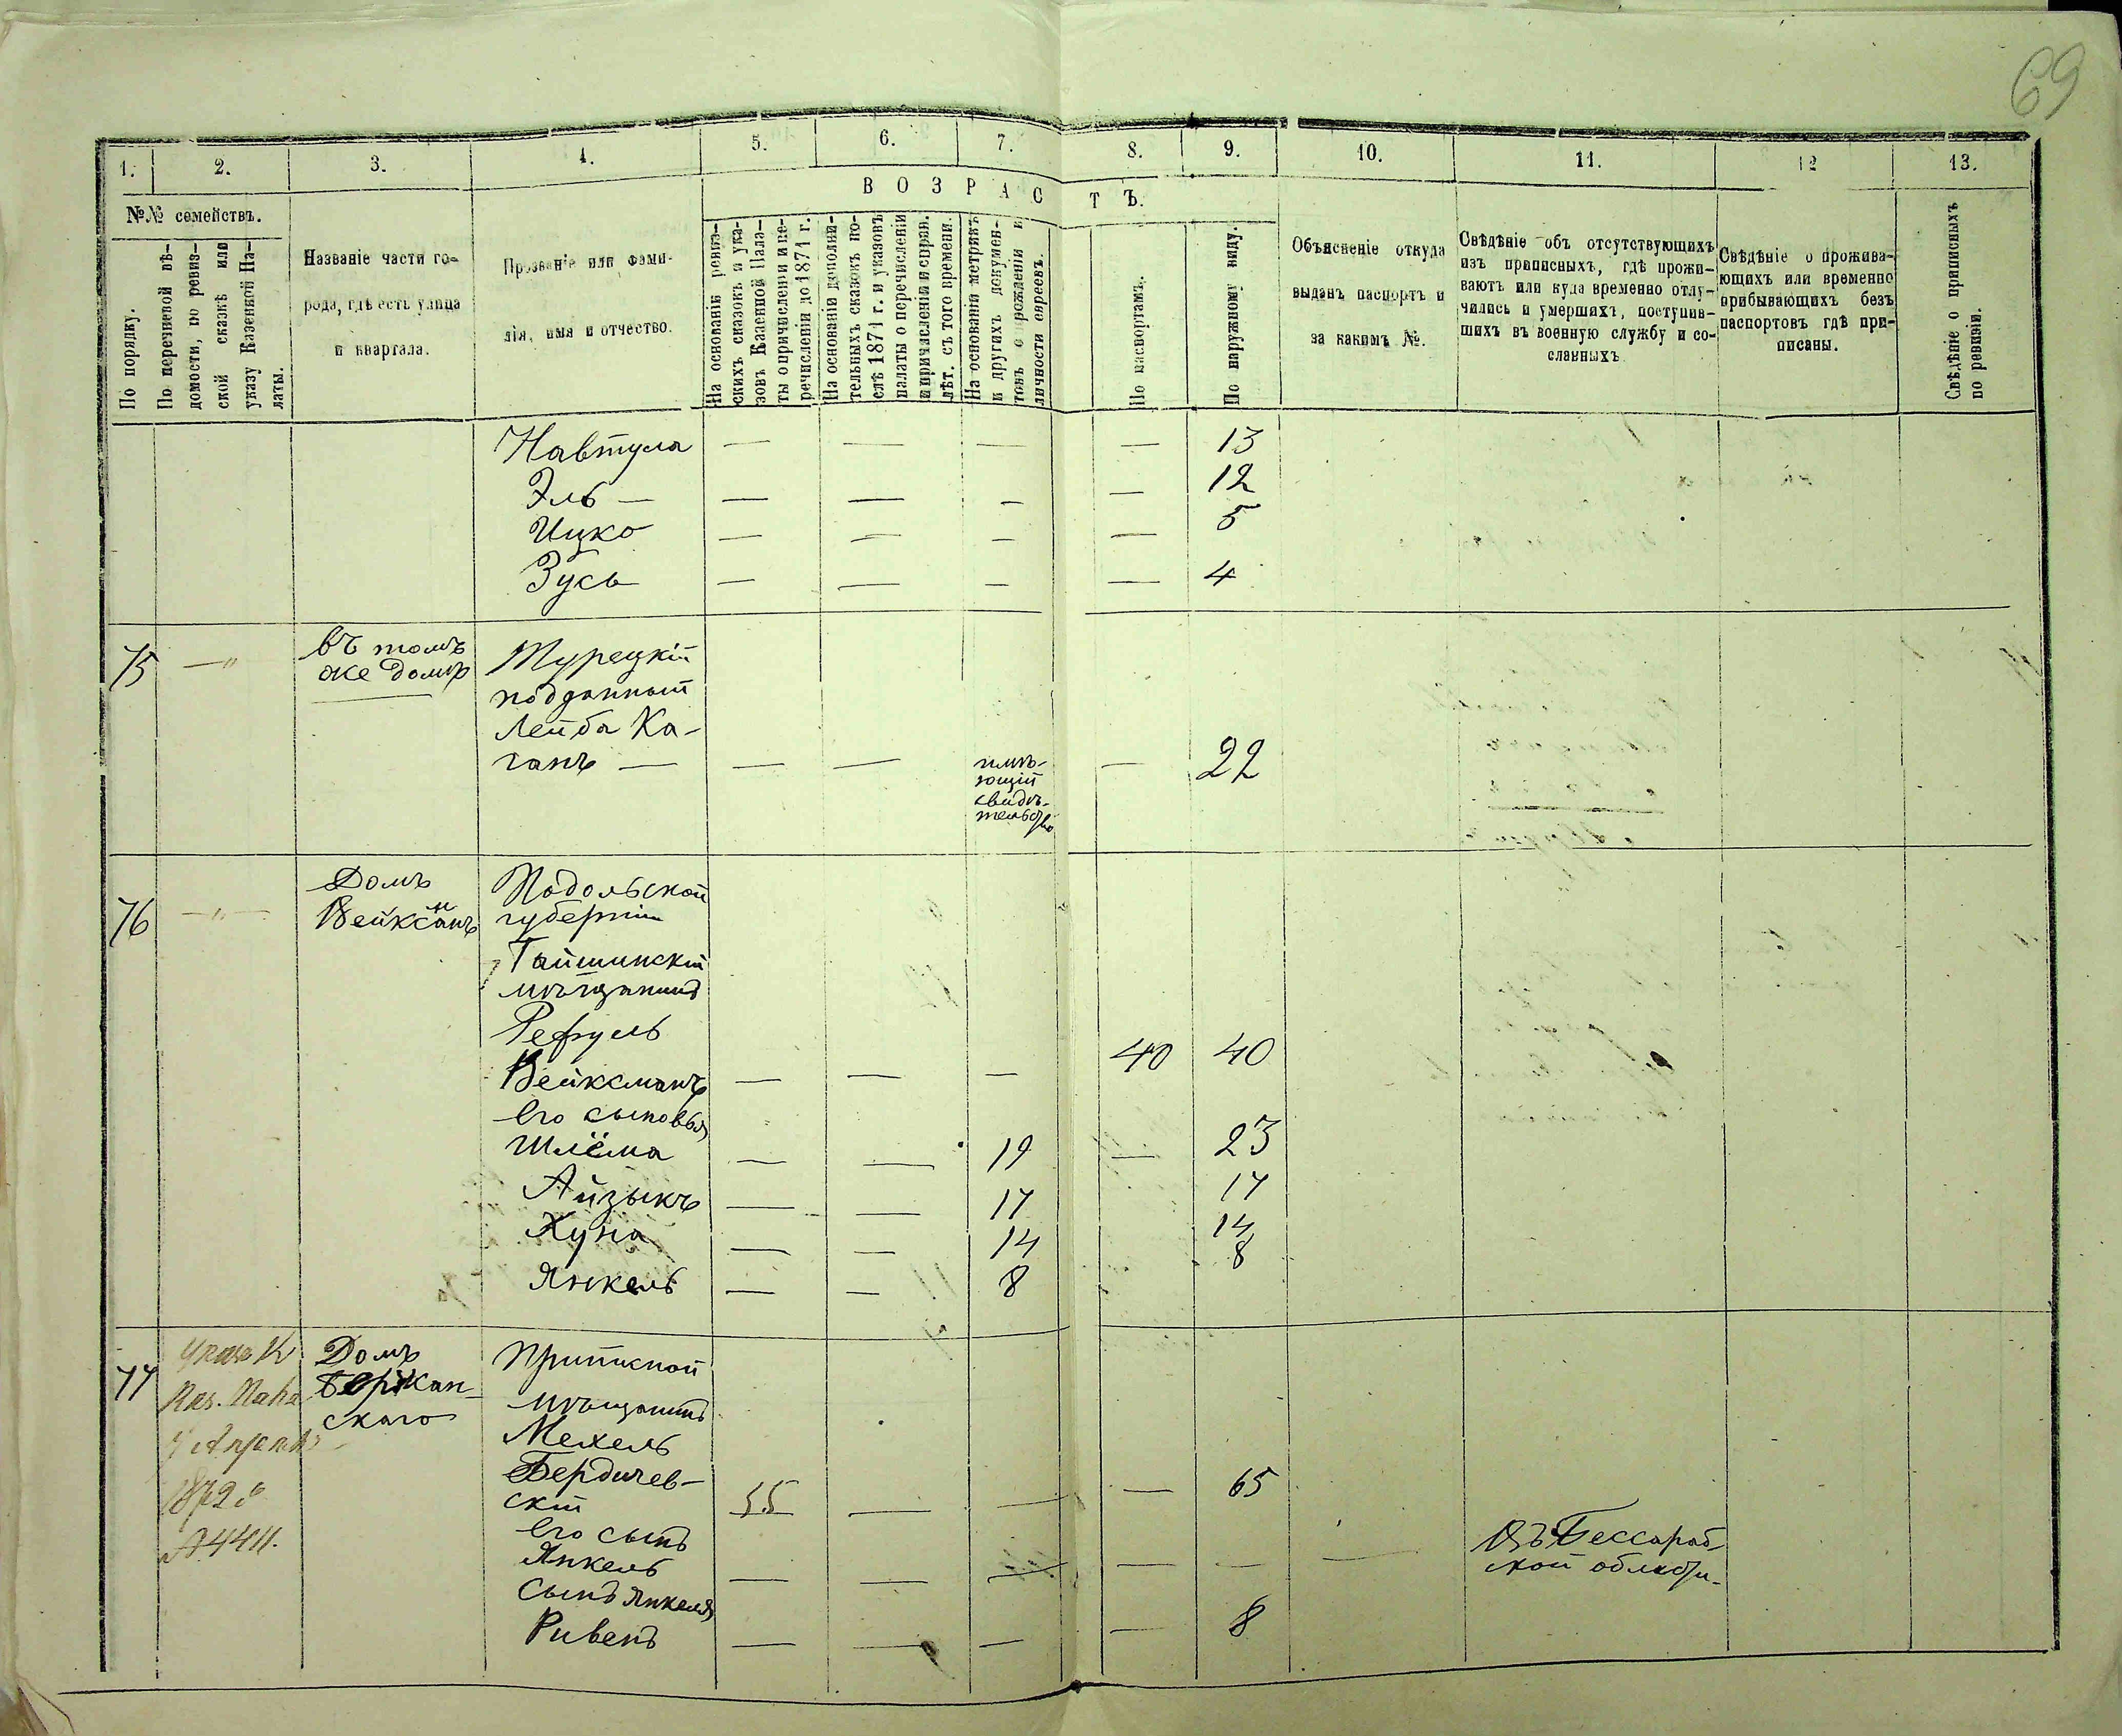 69
1. 2. 3. 4. 5. 6. 7. 8. 9. 10. 11. 12 13.
№№ семействъ.
По порядку.
По перечневой вѣ-
домости, по ревиз-
ской сказкѣ или
указу Казенной Па-
латы.
Названіе части го-
рода, гдѣ есть улица
и квартала.
Прозваніе или фами-
лія, имя и отчество.
ВОЗРАСТЪ.
На основаніи ревиз-
скихъ сказокъ и ука-
зовъ Казенной Пала-
ты о причисленіи и пе-
речисленіи до 1871 г.
На основаніи дополни-
тельныхъ сказокъ по-
слѣ 1871 г. и указовъ
палаты о перечисленіи
и причисленіи и справ.
лѣт. съ того времени.
На основаніи метрикъ
и другихъ докумен-
товъ о рожденіи и
личности евреевъ.
По паспортамъ.
По наружному виду.
Объясненіе откуда
выданъ паспортъ и
за какимъ №.
Свѣдѣніе объ отсутствующихъ
изъ приписныхъ, гдѣ прожи-
ваютъ или куда временно отлу-
чились и умершихъ, поступив-
шихъ въ военную службу и со-
сланныхъ
Свѣдѣніе о прожива-
ющихъ или временно
прибывающихъ безъ
паспортовъ гдѣ при-
писаны.
Свѣдѣніе о приписныхъ
по ревизіи.
Навтула — — — — 13
Эль — — — — — 12
Ицко — — — — 5
Зусь — — — — 4
75 —"
въ томъ
же домѣ
Турецкій
подданный
Лейба Ка-
ганъ — — — — 22
имѣ-
ющій
свидѣ-
тельство
76 —"—
Домъ
Вейксманъ
Подольской
губерніи
Гайшинскій
мѣщанинъ
Рефуль
Вейксманъ — — — 40 40
его сыновья
Шлёма — — 19 — 23
Айзыкъ — — 17 17
Хуна — — 14 14
Янкель — — 8 8
77
Указъ К
Каз. Пала
1872 г
№ 4411.
Домъ
скаго
Приписной
мѣщанинъ
Мехель
Бердичев-
скій 55 — — — 65
его сынъ
Янкель — — — — — —
Въ Бессараб-
ской области-
сынъ Янкеля
Ривенъ — — — — 8